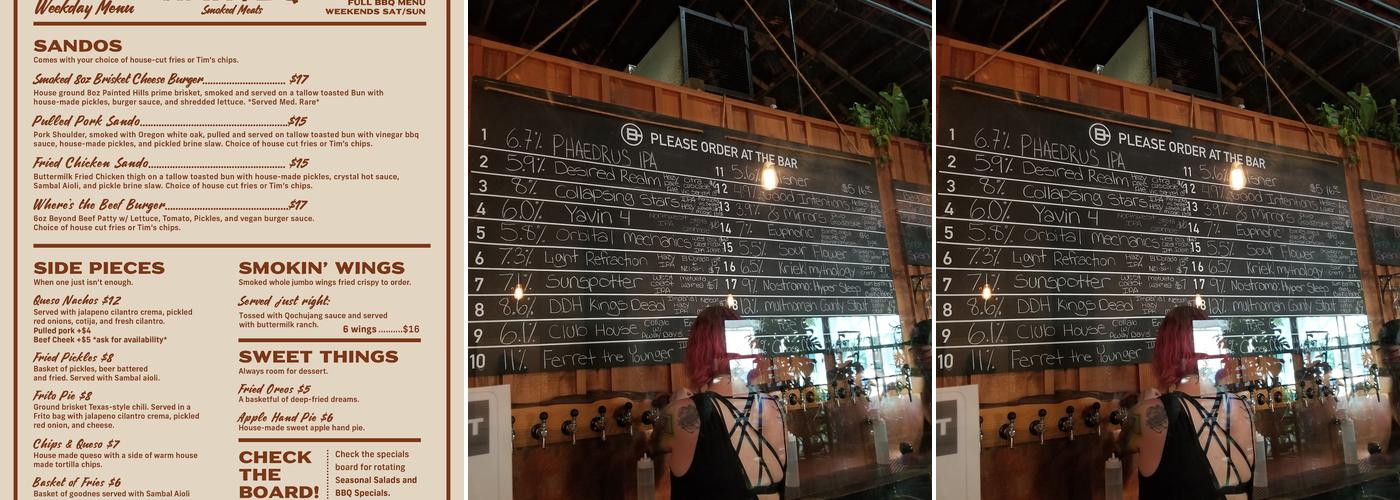 Weekday Menu
Smoked Meats
FULL BBQ MENU
WEEKENDS SAT/SUN
SANDOS
Comes with your choice of house-cut fries or Tim's chips.
Smoked 8oz Brisket Cheese Burger............................. $17
House ground 8oz Painted Hills prime brisket, smoked and served on a tallow toasted Bun with
house-made pickles, burger sauce, and shredded lettuce. *Served Med. Rare*
Pulled Pork Sando....................................................$15
Pork Shoulder, smoked with Oregon white oak, pulled and served on tallow toasted bun with vinegar bbq
sauce, house-made pickles, and pickled brine slaw. Choice of house cut fries or Tim's chips.
Fried Chicken Sando................................................ $15
Buttermilk Fried Chicken thigh on a tallow toasted bun with house-made pickles, crystal hot sauce,
Sambal Aioli, and pickle brine slaw. Choice of house cut fries or Tim's chips.
Where's the Beef Burger...........................................$17
6oz Beyond Beef Patty w/ Lettuce, Tomato, Pickles, and vegan burger sauce.
Choice of house cut fries or Tim's chips.
SIDE PIECES
When one just isn't enough.
Queso Nachos $12
Served with jalapeno cilantro crema, pickled
red onions, cotija, and fresh cilantro.
Pulled pork +$4
Beef Cheek +$5 *ask for availability*
Fried Pickles $8
Basket of pickles, beer battered
and fried. Served with Sambal aioli.
Frito Pie $8
Ground brisket Texas-style chili. Served in a
Frito bag with jalapeno cilantro crema, pickled
red onion, and cheese.
Chips & Queso $7
House made queso with a side of warm house
made tortilla chips.
Basket of Fries $6
Basket of goodnes served with Sambal Aioli
SMOKIN' WINGS
Smoked whole jumbo wings fried crispy to order.
Served just right:
Tossed with Gochujang sauce and served
with buttermilk ranch.
6 wings .........$16
SWEET THINGS
Always room for dessert.
Fried Oreos $5
A basketful of deep-fried dreams.
Apple Hand Pie $6
House-made sweet apple hand pie.
CHECK
THE
BOARD!
Check the specials
board for rotating
Seasonal Salads and
BBQ Specials.
PLEASE ORDER AT THE BAR
1 6.7% PHAEDRUS IPA
2 5.9% Desired Realm
3 8% Collapsing Stars
4 6.0% Yavin 4
5 5.8% Orbital Mechanics
6 7.3% Light Refraction Hazy IPA
7 7.1% Sunspotter West Coast IPA
8 8.6% DDH Kings Dead
9 6.1% Club House
10 11% Ferret the Younger
11 5.6%
12 Good Intentions
13 3.9% & Mirrors
14 7% Euphoric
15 5.5% Sour Flower
16 6.5% Kriek mythology
17 9% Nostromo: Hyper Sleep
12% multnomah County Stout
PLEASE ORDER AT THE BAR
1 6.7% PHAEDRUS IPA
2 5.9% Desired Realm
3 8% Collapsing Stars
4 6.0% Yavin 4
5 5.8% Orbital Mechanics
6 7.3% Light Refraction Hazy IPA
7 7.1% Sunspotter West Coast IPA
8 8.6% DDH Kings Dead
9 6.1% Club House
10 11% Ferret the Younger
11 5.6%
12 Good Intentions
13 3.9% & Mirrors
14 7% Euphoric
15 5.5% Sour Flower
16 6.5% Kriek mythology
17 9% Nostromo: Hyper Sleep
12% multnomah County Stout